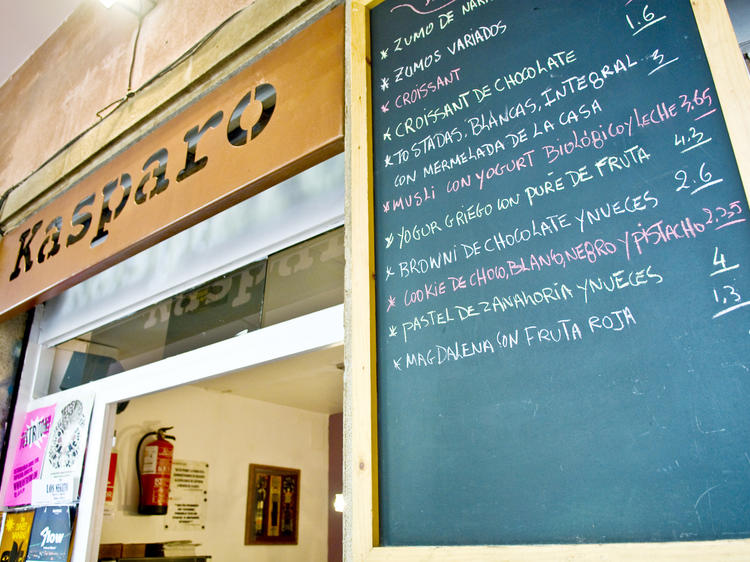 Kasparo
* ZUMO DE
* ZUMOS VARIADOS
* CROISSANT 1.6
* CROISSANT DE CHOCOLATE
* TOSTADAS, BLANCAS, INTEGRAL 3
CON MERMELADA DE LA CASA
* MUSLI CON YOGURT BIOLÓGICO Y LECHE 3,65
* YOGUR GRIEGO CON PURÉ DE FRUTA 4.2
* BROWNI DE CHOCOLATE Y NUECES 2.6
* COOKIE DE CHOCO, BLANCO, NEGRO Y PISTACHO 2,235
* PASTEL DE ZANAHORIA Y NUECES 4
* MAGDALENA CON FRUTA ROJA 1,3
Slow